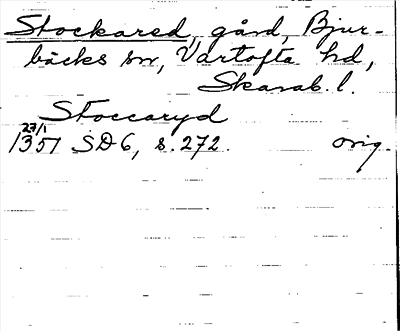 Stockared, gård, Bjur-
bäcks sn, Vartofta hd,
Skarab. l.
Stoccaryd
23/1
1351 SD 6, s. 272. orig.